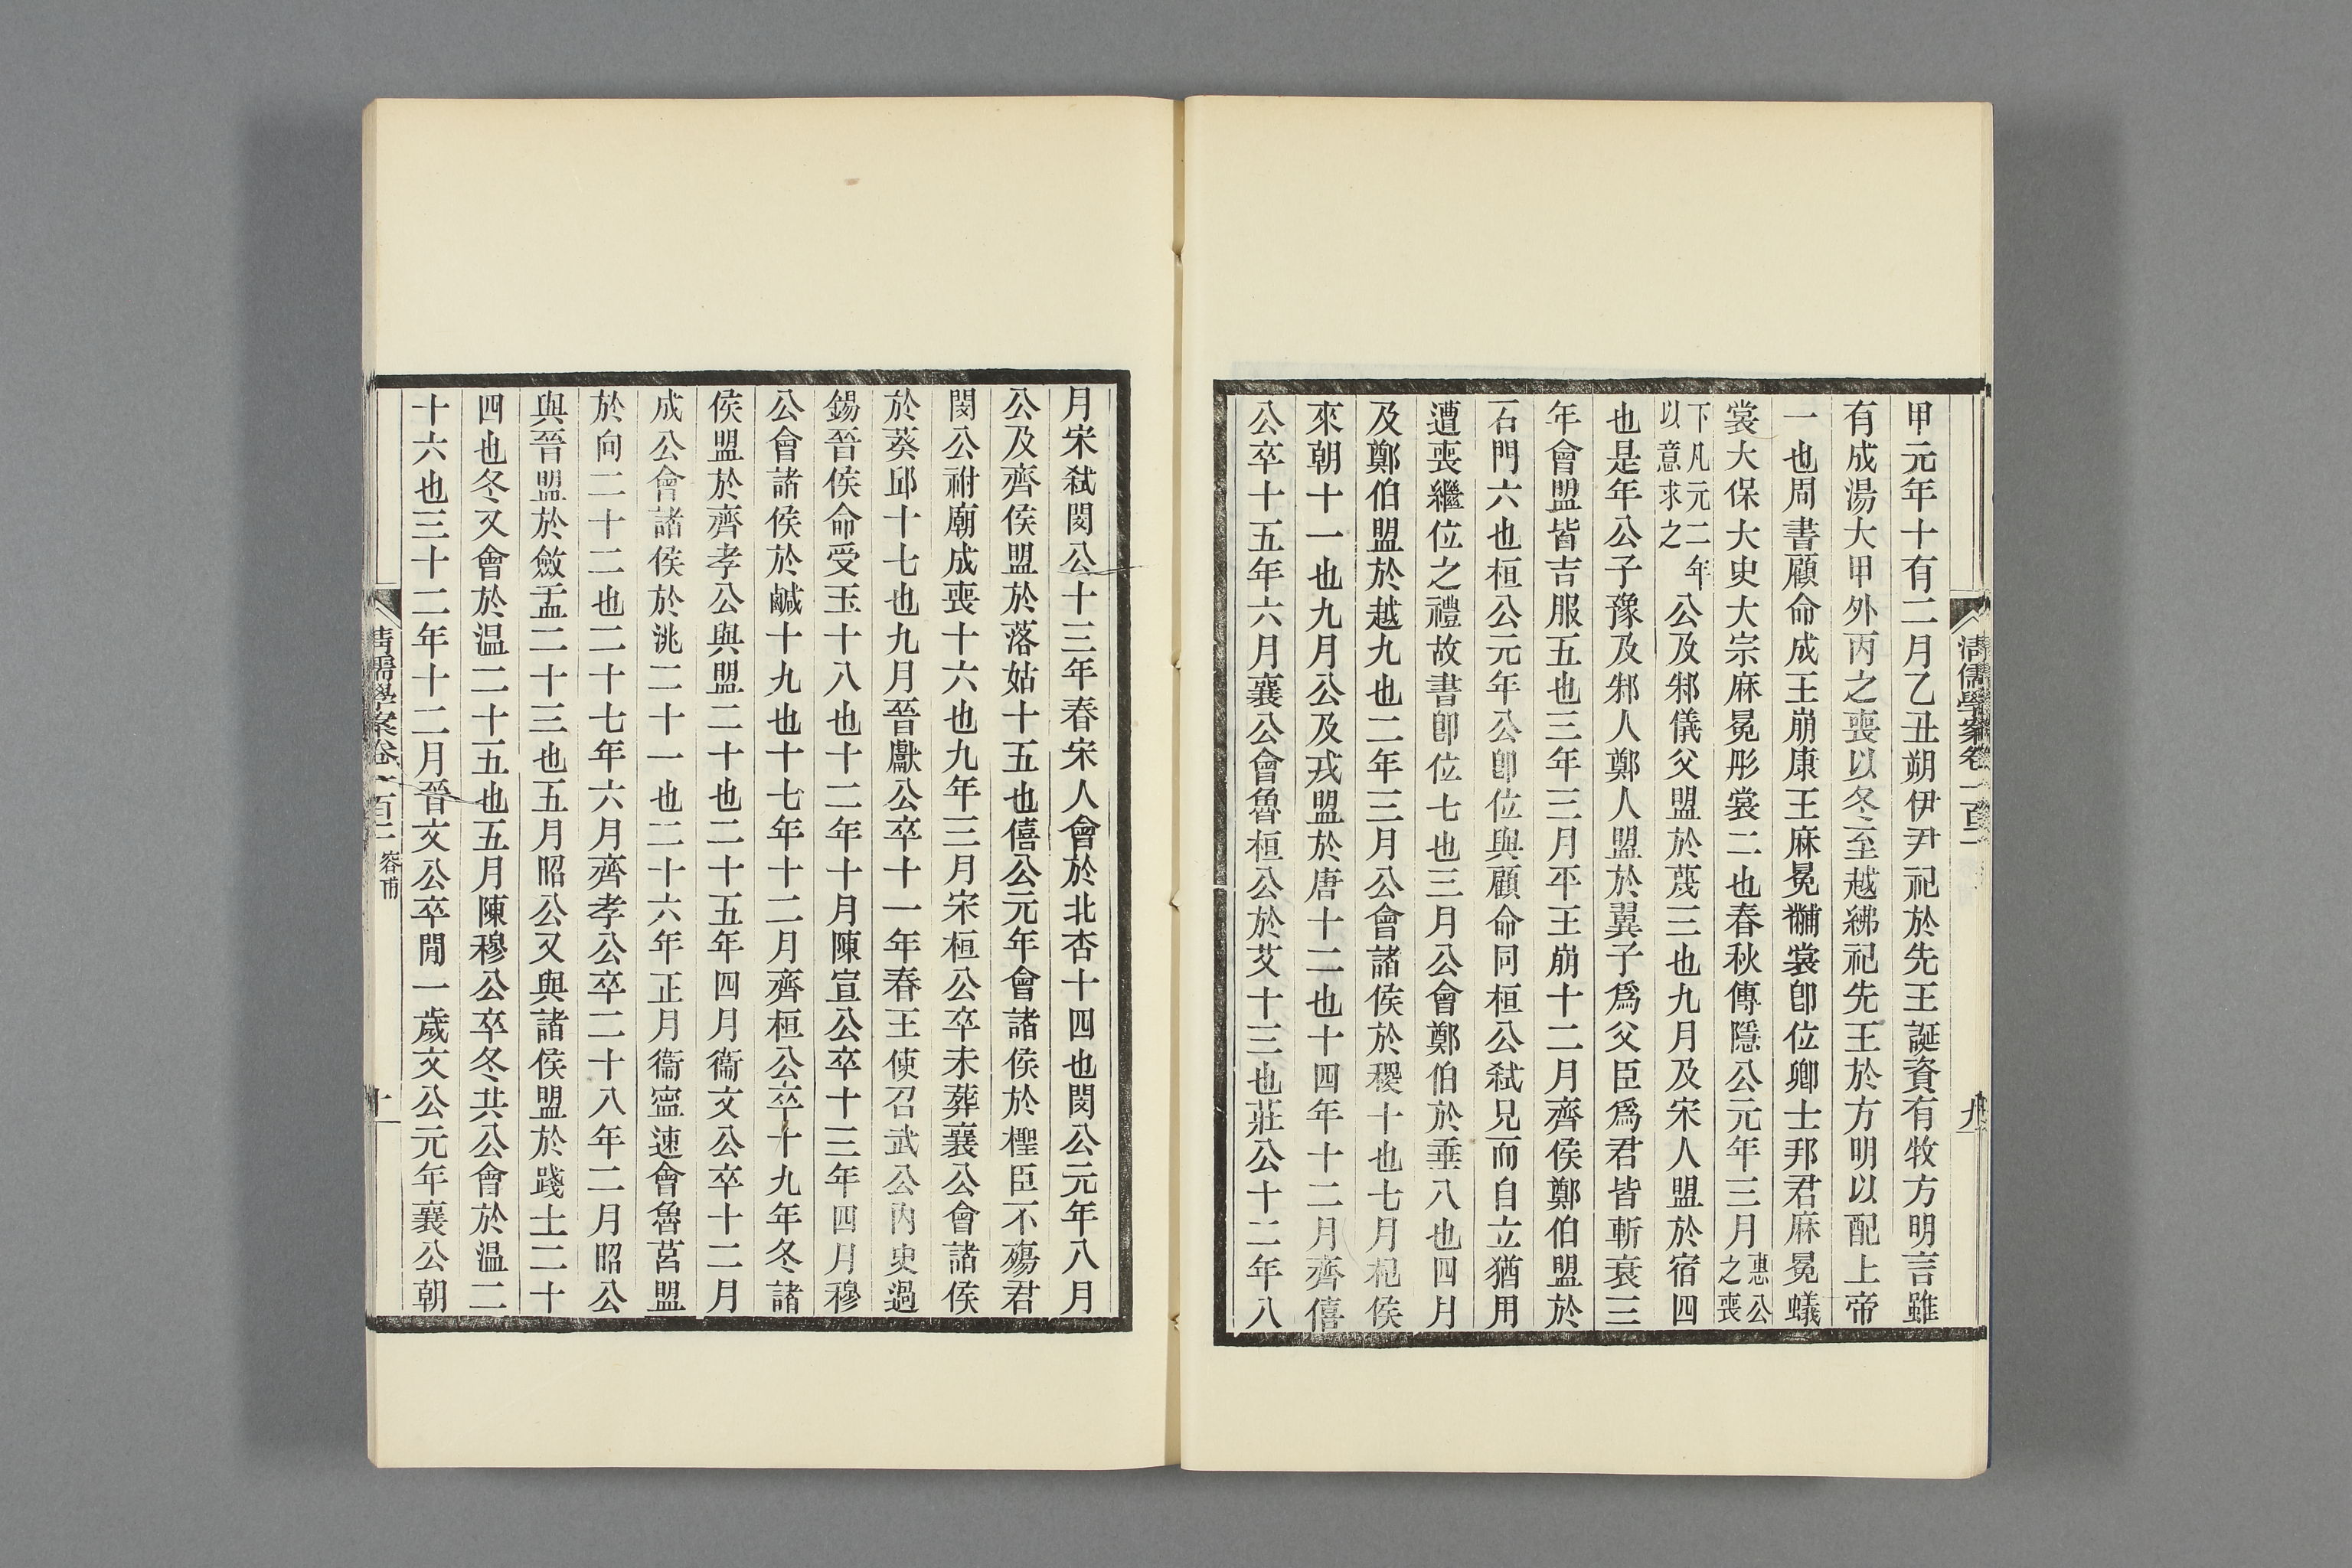 清儒學案卷一百二
九
甲元年十有二月乙丑朔伊尹祀於先王誕資有牧方明言雖
有成湯大甲外丙之喪以冬至越紼祀先王於方明以配上帝
一也周書顧命成王崩康王麻冕黼裳卽位卿士邦君麻冕蟻
裳大保大史大宗麻冕彤裳二也春秋傳隱公元年三月惠公之喪
下凡元二年以意求之公及邾儀父盟於蔑三也九月及宋人盟於宿四
也是年公子豫及邾人鄭人盟於翼子爲父臣爲君皆斬衰三
年會盟皆吉服五也三年三月平王崩十二月齊侯鄭伯盟於
石門六也桓公元年公卽位與顧命同桓公弒兄而自立猶用
遭喪繼位之禮故書卽位七也三月公會鄭伯於垂八也四月
及鄭伯盟於越九也二年三月公會諸侯於稷十也七月杞侯
來朝十一也九月公及戎盟於唐十二也十四年十二月齊僖
公卒十五年六月襄公會魯桓公於艾十三也莊公十二年八
月宋弒閔公十三年春宋人會於北杏十四也閔公元年八月
公及齊侯盟於落姑十五也僖公元年會諸侯於檉臣不殤君
閔公祔廟成喪十六也九年三月宋桓公卒未葬襄公會諸侯
於葵邱十七也九月晉獻公卒十一年春王使召武公內史過
錫晉侯命受玉十八也十二年十月陳宣公卒十三年四月穆
公會諸侯於鹹十九也十七年十二月齊桓公卒十九年冬諸
侯盟於齊孝公與盟二十也二十五年四月衞文公卒十二月
成公會諸侯於洮二十一也二十六年正月衞甯速會魯莒盟
於向二十二也二十七年六月齊孝公卒二十八年二月昭公
與晉盟於斂盂二十三也五月昭公又與諸侯盟於踐土二十
四也冬又會於溫二十五也五月陳穆公卒冬共公會於溫二
十六也三十二年十二月晉文公卒閒一歲文公元年襄公朝
清儒學案卷一百二 容甫
十